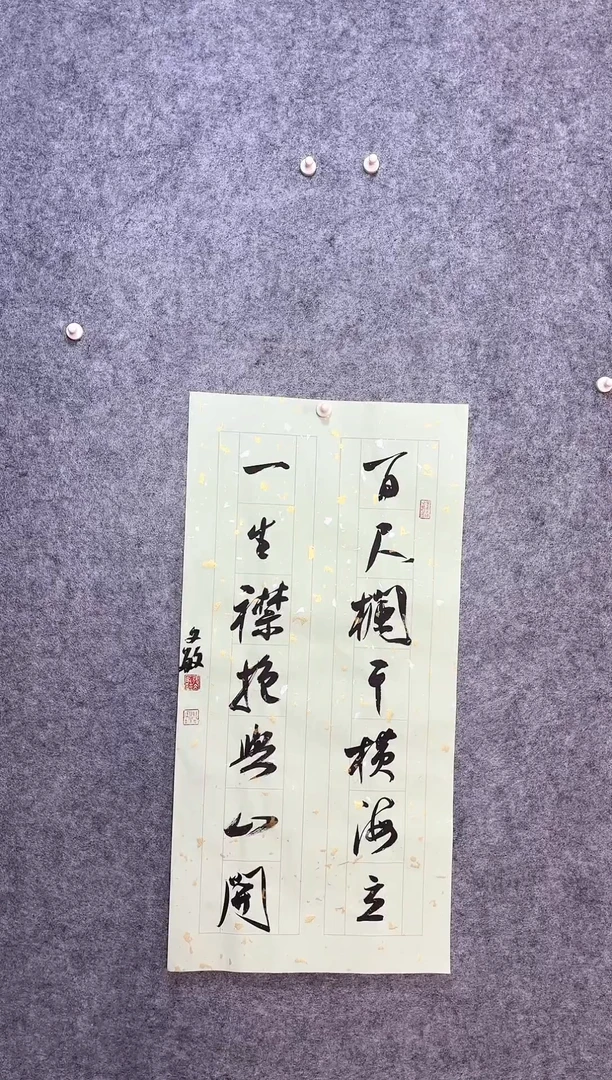 百尺欄干橫海立
一生襟抱與山開
文敏